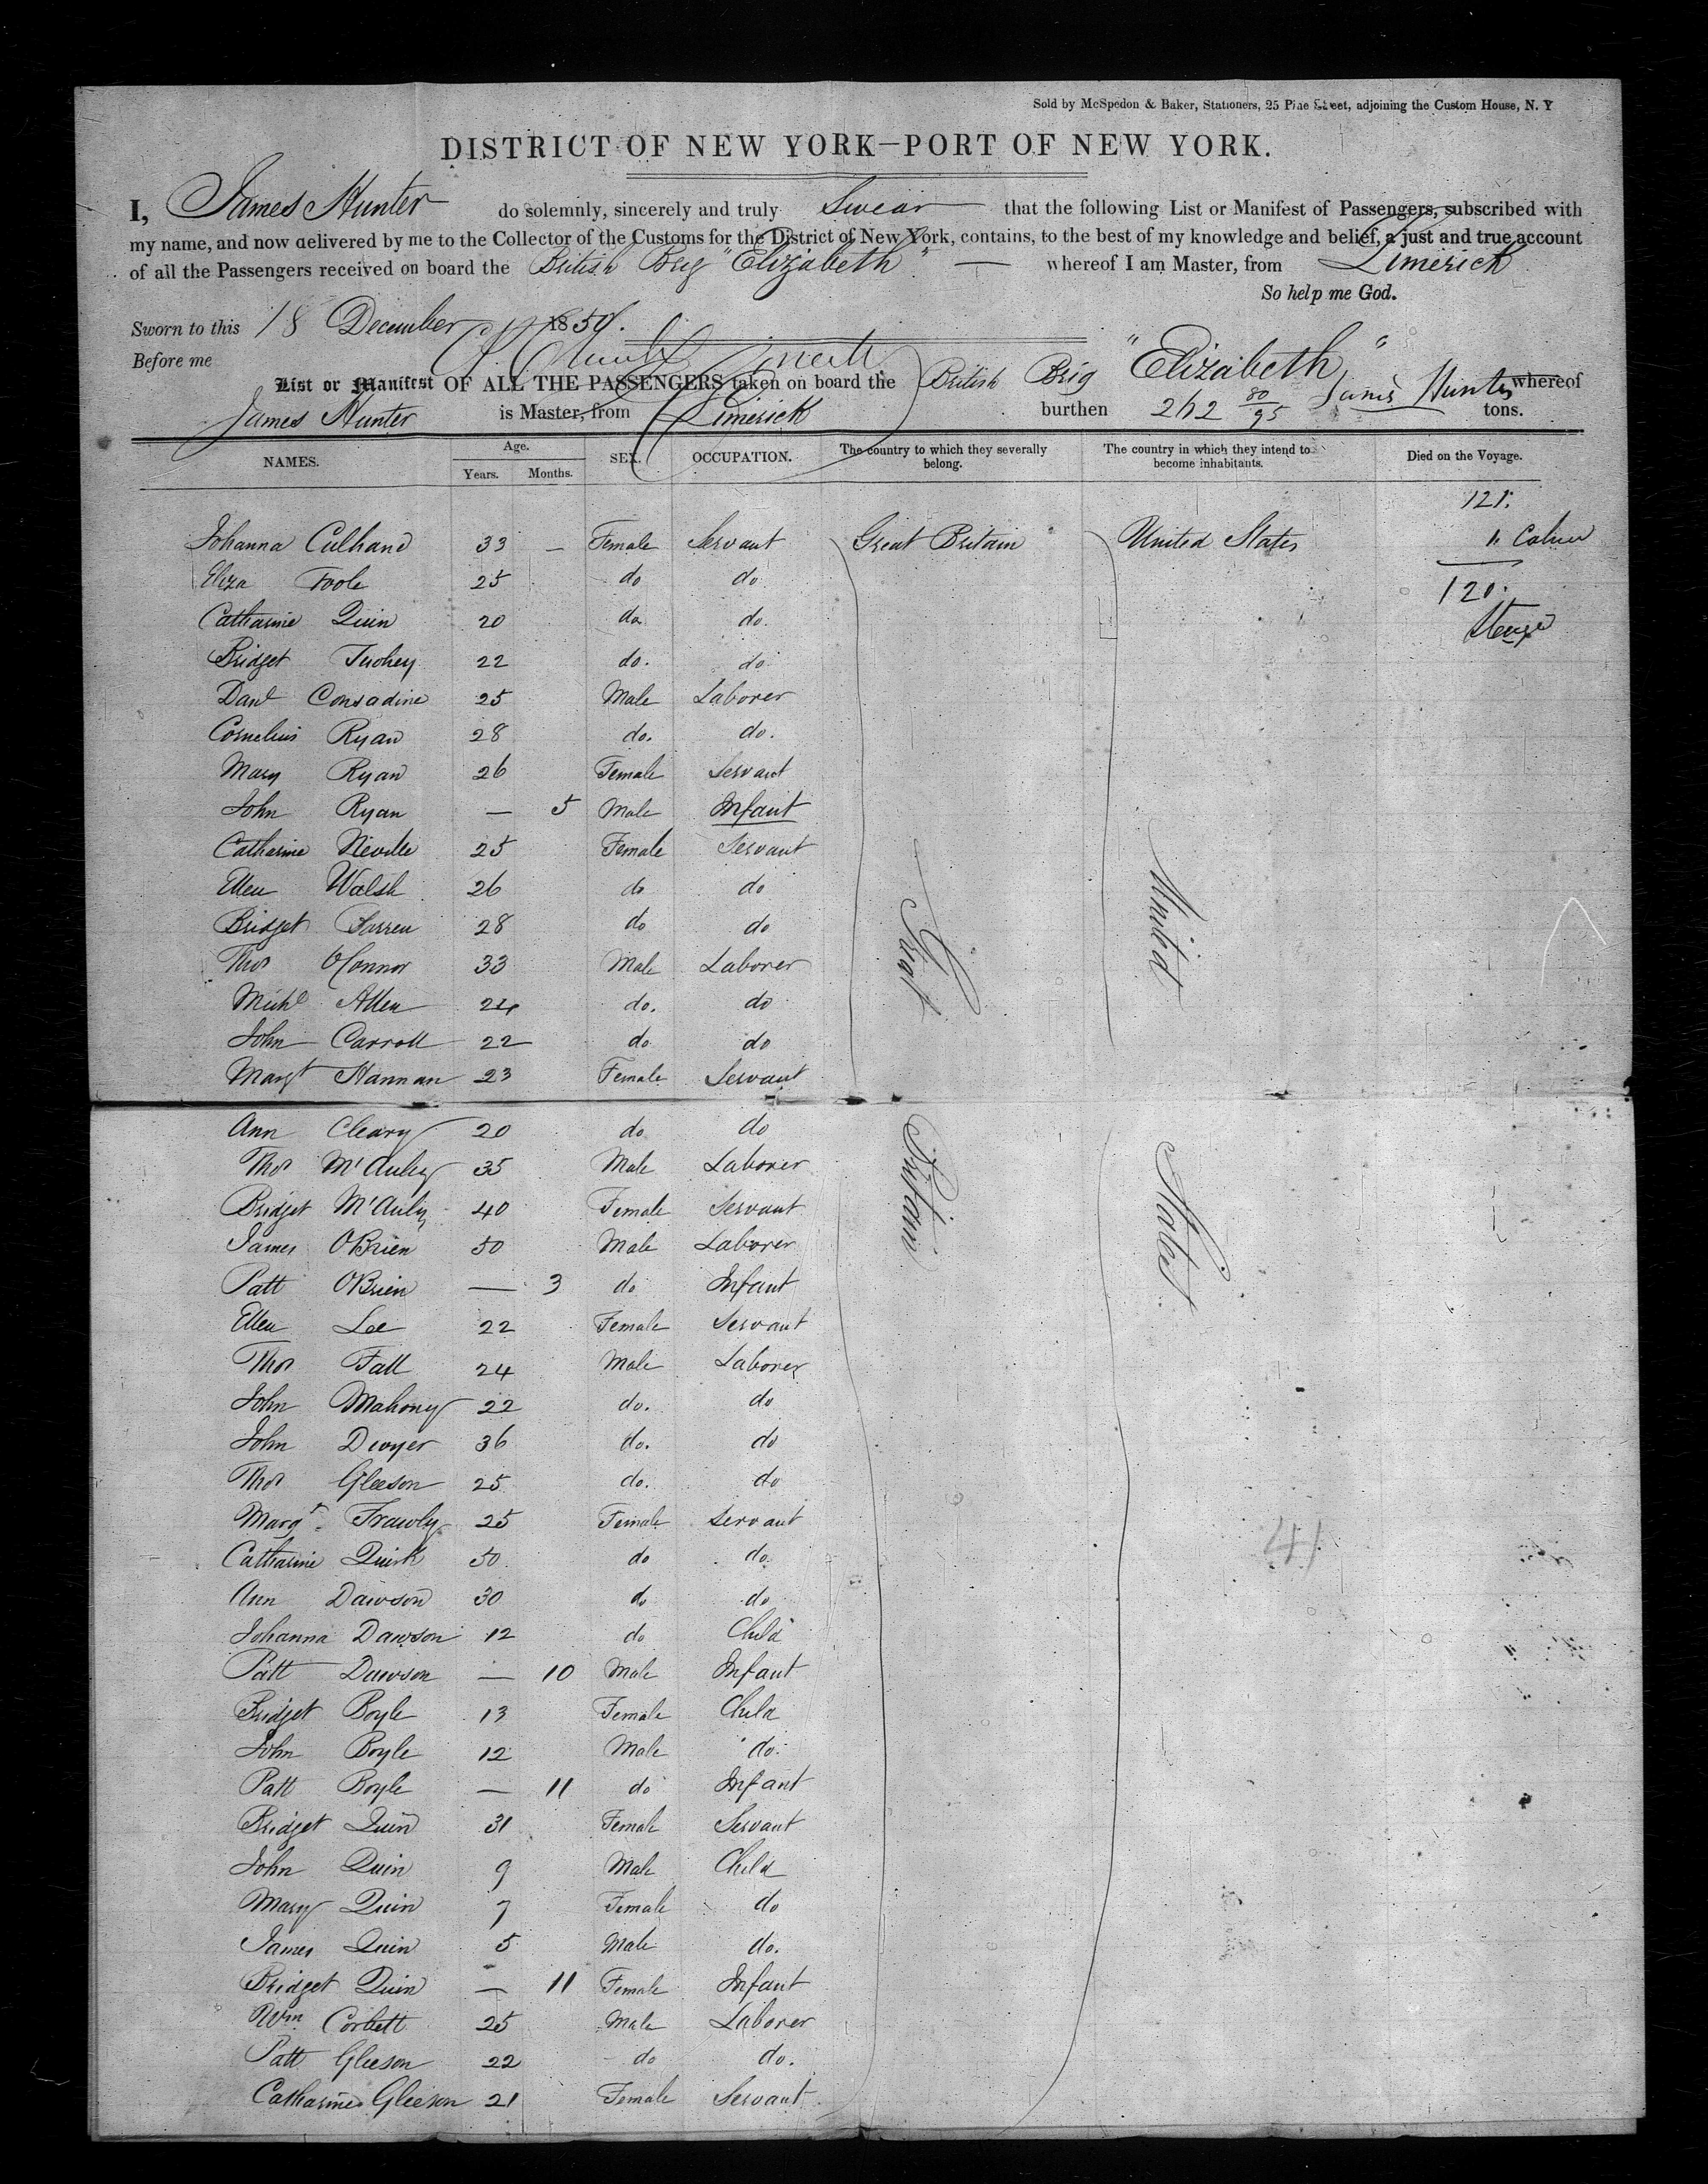 Sold by McSpedon & Baker, Stationers, 25 Pine Street, adjoining the Custom House, N. Y
DISTRICT OF NEW YORK—PORT OF NEW YORK.
I, James Hunter do solemnly, sincerely and truly Swear that the following List or Manifest of Passengers, subscribed with
my name, and now delivered by me to the Collector of the Customs for the District of New York, contains, to the best of my knowledge and belief, a just and true account
of all the Passengers received on board the British Brig "Elizabeth" — whereof I am Master, from Limerick
So help me God.
Sworn to this 18 December 1850.
Before me
List or Manifest OF ALL THE PASSENGERS taken on board the British Brig "Elizabeth" whereof
James Hunter is Master, from Limerick burthen 262 80/95 James Hunter tons.
NAMES. Age. Years. Months. SEX. OCCUPATION. The country to which they severally belong. The country in which they intend to become inhabitants. Died on the Voyage.
121.
Johanna Culhane 33 — Female Servant Great Britain United States 1.
Eliza Toole 25 do do 120.
Catharine Quin 20 do do.
Bridget Tuohey 22 do. do
Danl Consadine 25 Male Laborer
Cornelius Ryan 28 do. do.
Mary Ryan 26 Female Servant
John Ryan — 5 Male Infant
Catharine Neville 25 Female Servant
Ellen Walsh 26 do do
Bridget Farren 28 do do
Thos OConnor 33 Male Laborer
Michl Allen 24 do. do
John Carroll 22 do do
Margt Hannan 23 Female Servant
Great United
Ann Cleary 20 do do
Thos McAuley 35 Male Laborer
Bridget McAuly 40 Female Servant
James OBrien 50 Male Laborer
Britain States
Patt OBrien — 3 do Infant
Ellen Lee 22 Female Servant
Thos Fall 24 Male Laborer
John Mahony 22 do. do
John Dwyer 36 do. do
Thos Gleeson 25 do. do
Margt Frawly 25 Female Servant
Catharine Quirk 50 do do
41
Ann Dawson 30 do do
Johanna Dawson 12 do Child
Patt Dawson — 10 Male Infant
Bridget Boyle 13 Female Child
John Boyle 12 Male do.
Patt Boyle — 11 do Infant
Bridget Quin 31 Female Servant
John Quin 9 Male Child
Mary Quin 7 Female do
James Quin 5 Male do.
Bridget Quin — 11 Female Infant
Wm Corbett 25 Male Laborer
Patt Gleeson 22 do do.
Catharine Gleeson 21 Female Servant